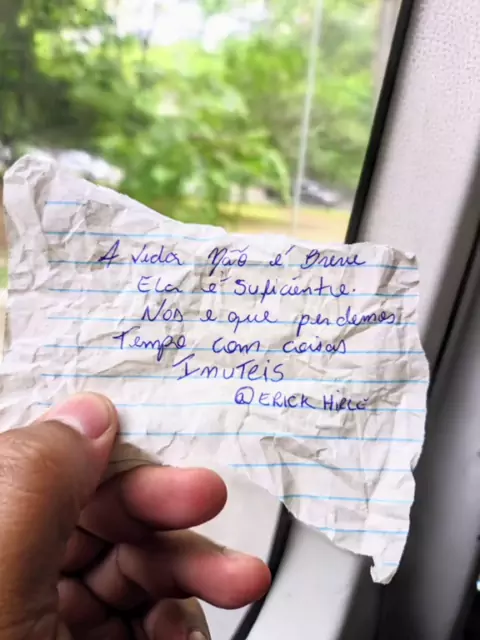 A vida Não é Breve
Ela é suficiente.
Nos e que perdemos
Tempo com coisas
Inuteis
@ERICK HIRLE